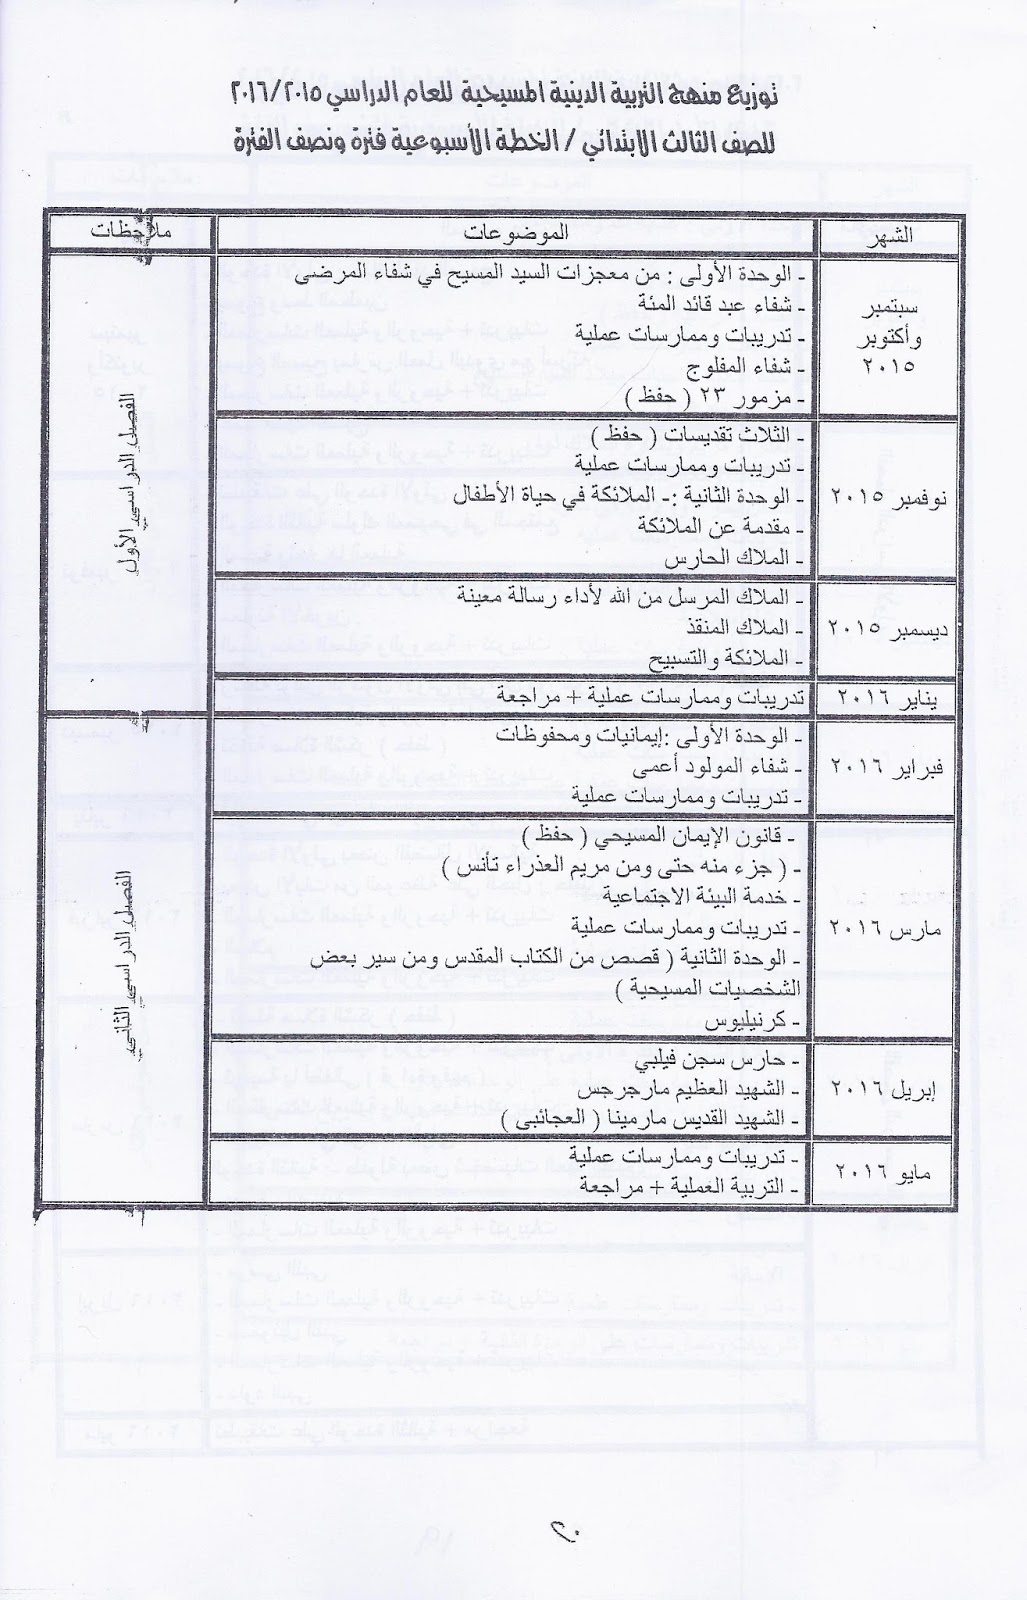 توزيع منهج التربية الدينية المسيحية للعام الدراسي ٢٠١٦/٢٠١٥
للصف الثالث الابتدائي / الخطة الأسبوعية فترة ونصف الفترة
الشهر الموضوعات ملاحظات
سبتمبر
وأكتوبر
٢٠١٥
- الوحدة الأولى : من معجزات السيد المسيح في شفاء المرضى
- شفاء عبد قائد المئة
- تدريبات وممارسات عملية
- شفاء المفلوج
- مزمور ٢٣ ( حفظ )
الفصل الدراسي الأول
نوفمبر ٢٠١٥
- الثلاث تقديسات ( حفظ )
- تدريبات وممارسات عملية
- الوحدة الثانية :- الملائكة في حياة الأطفال
- مقدمة عن الملائكة
- الملاك الحارس
ديسمبر ٢٠١٥
- الملاك المرسل من الله لأداء رسالة معينة
- الملاك المنقذ
- الملائكة والتسبيح
يناير ٢٠١٦
تدريبات وممارسات عملية + مراجعة
فبراير ٢٠١٦
- الوحدة الأولى :إيمانيات ومحفوظات
- شفاء المولود أعمى
- تدريبات وممارسات عملية
الفصل الدراسي الثاني
مارس ٢٠١٦
- قانون الإيمان المسيحي ( حفظ )
- ( جزء منه حتى ومن مريم العذراء تأنس )
- خدمة البيئة الاجتماعية
- تدريبات وممارسات عملية
- الوحدة الثانية ( قصص من الكتاب المقدس ومن سير بعض
الشخصيات المسيحية )
- كرنيليوس
إبريل ٢٠١٦
- حارس سجن فيلبي
- الشهيد العظيم مارجرجس
- الشهيد القديس مارمينا ( العجائبى )
مايو ٢٠١٦
- تدريبات وممارسات عملية
- التربية العملية + مراجعة